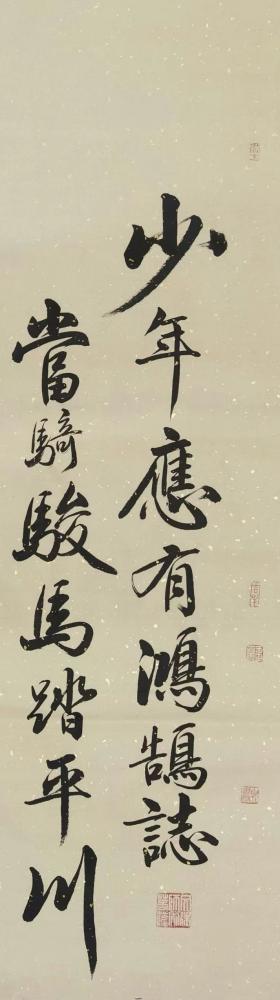 少年應有鴻鵠誌
當騎駿馬踏平川